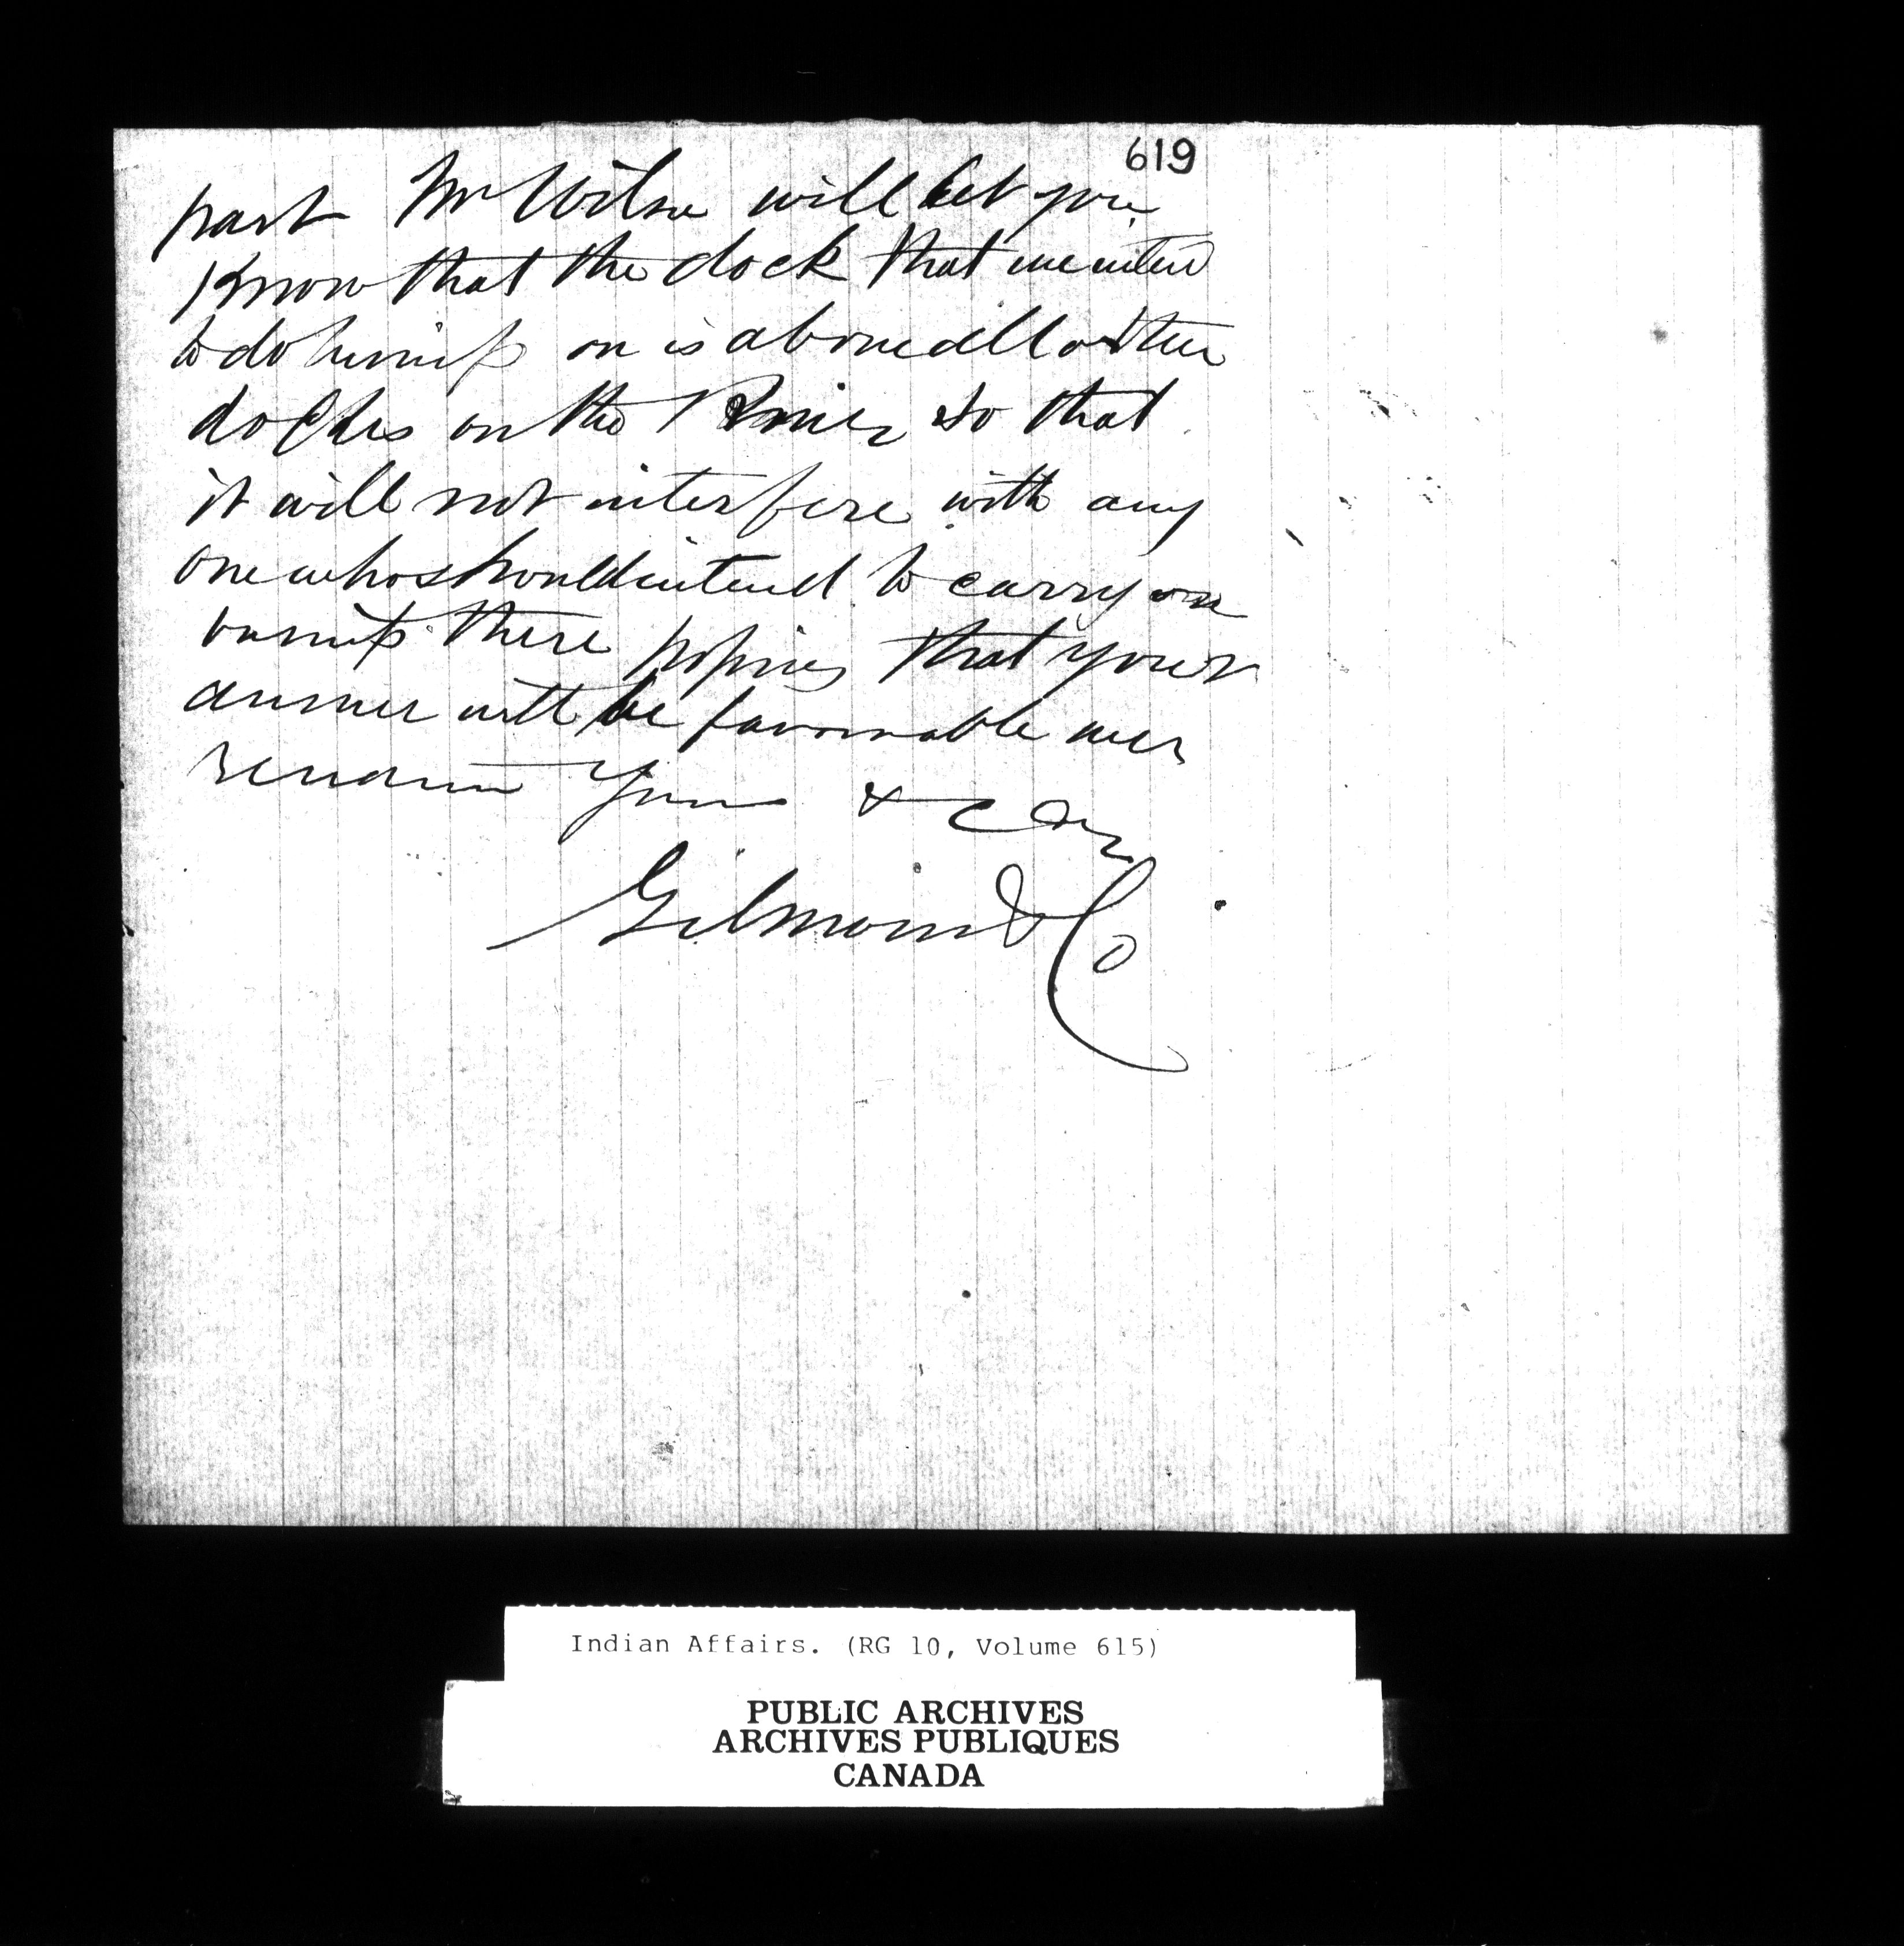 619
part Mr Wilson will let you
Know that the dock that we inten
to do busineſs on is above all other
docks on the River so that
it will not interfere with any
one who should intend to carry on
busineſs there hoping that your
answer will be favourable we
remain Yours &c
Gilmour & Co
Indian Affairs. (RG 10, Volume 615)
PUBLIC ARCHIVES
ARCHIVES PUBLIQUES
CANADA